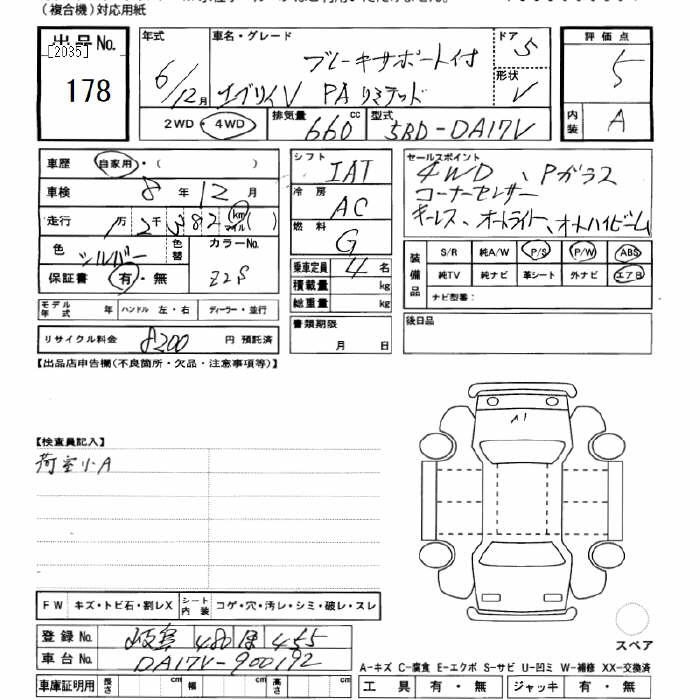 (複合機)対応用紙
出品No. [2035] 178
年式 6/12月
車名・グレード ブレーキサポート付
エブリイV PA リミテッド
ドア 5
形状 V
評価点 5
内装 A
2WD・4WD 排気量 660 cc 型式 5BD-DA17V
車歴 自家用・( )
車検 8年12月
走行 1万2千382 km マイル ( )
色 シルバー 色替 カラーNo. Z2S
保証書 有・無
モデル年式 年 ハンドル 左・右 ディーラー・並行
リサイクル料金 8200 円 預託済
シフト IAT
冷房 AC
燃料 G
乗車定員 4名
積載量 kg
総重量 kg
書類期限 月 日
セールスポイント
4WD、Pガラス
コーナーセンサー
キーレス、オートライト、オートハイビーム
装備品 S/R 純A/W P/S P/W ABS
純TV 純ナビ 革シート 外ナビ エアB
ナビ型番:
後日品
【出品店申告欄(不良箇所・欠品・注意事項等)】
A1
【検査員記入】
荷室小A
FW キズ・トビ石・割レX シート内装 コゲ・穴・汚レ・シミ・破レ・スレ
スペア
登録No. 岐阜 480 ほ 455
車台No. DA17V-900192
A-キズ C-腐食 E-エクボ S-サビ U-凹ミ W-補修 XX-交換済
車庫証明用 長さ cm 幅 cm 高さ cm
工具 有・無 ジャッキ 有・無